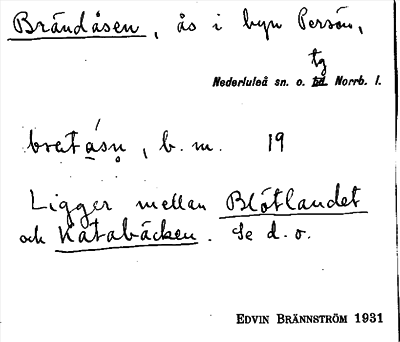 Brändåsen, ås i byn Persön,
tg
Nederluleå sn. o. hd. Norrb. l.
, b. m. 19
Ligger mellan Blötlandet
och Katabäcken. Se d. o.
EDVIN BRÄNNSTRÖM 1931